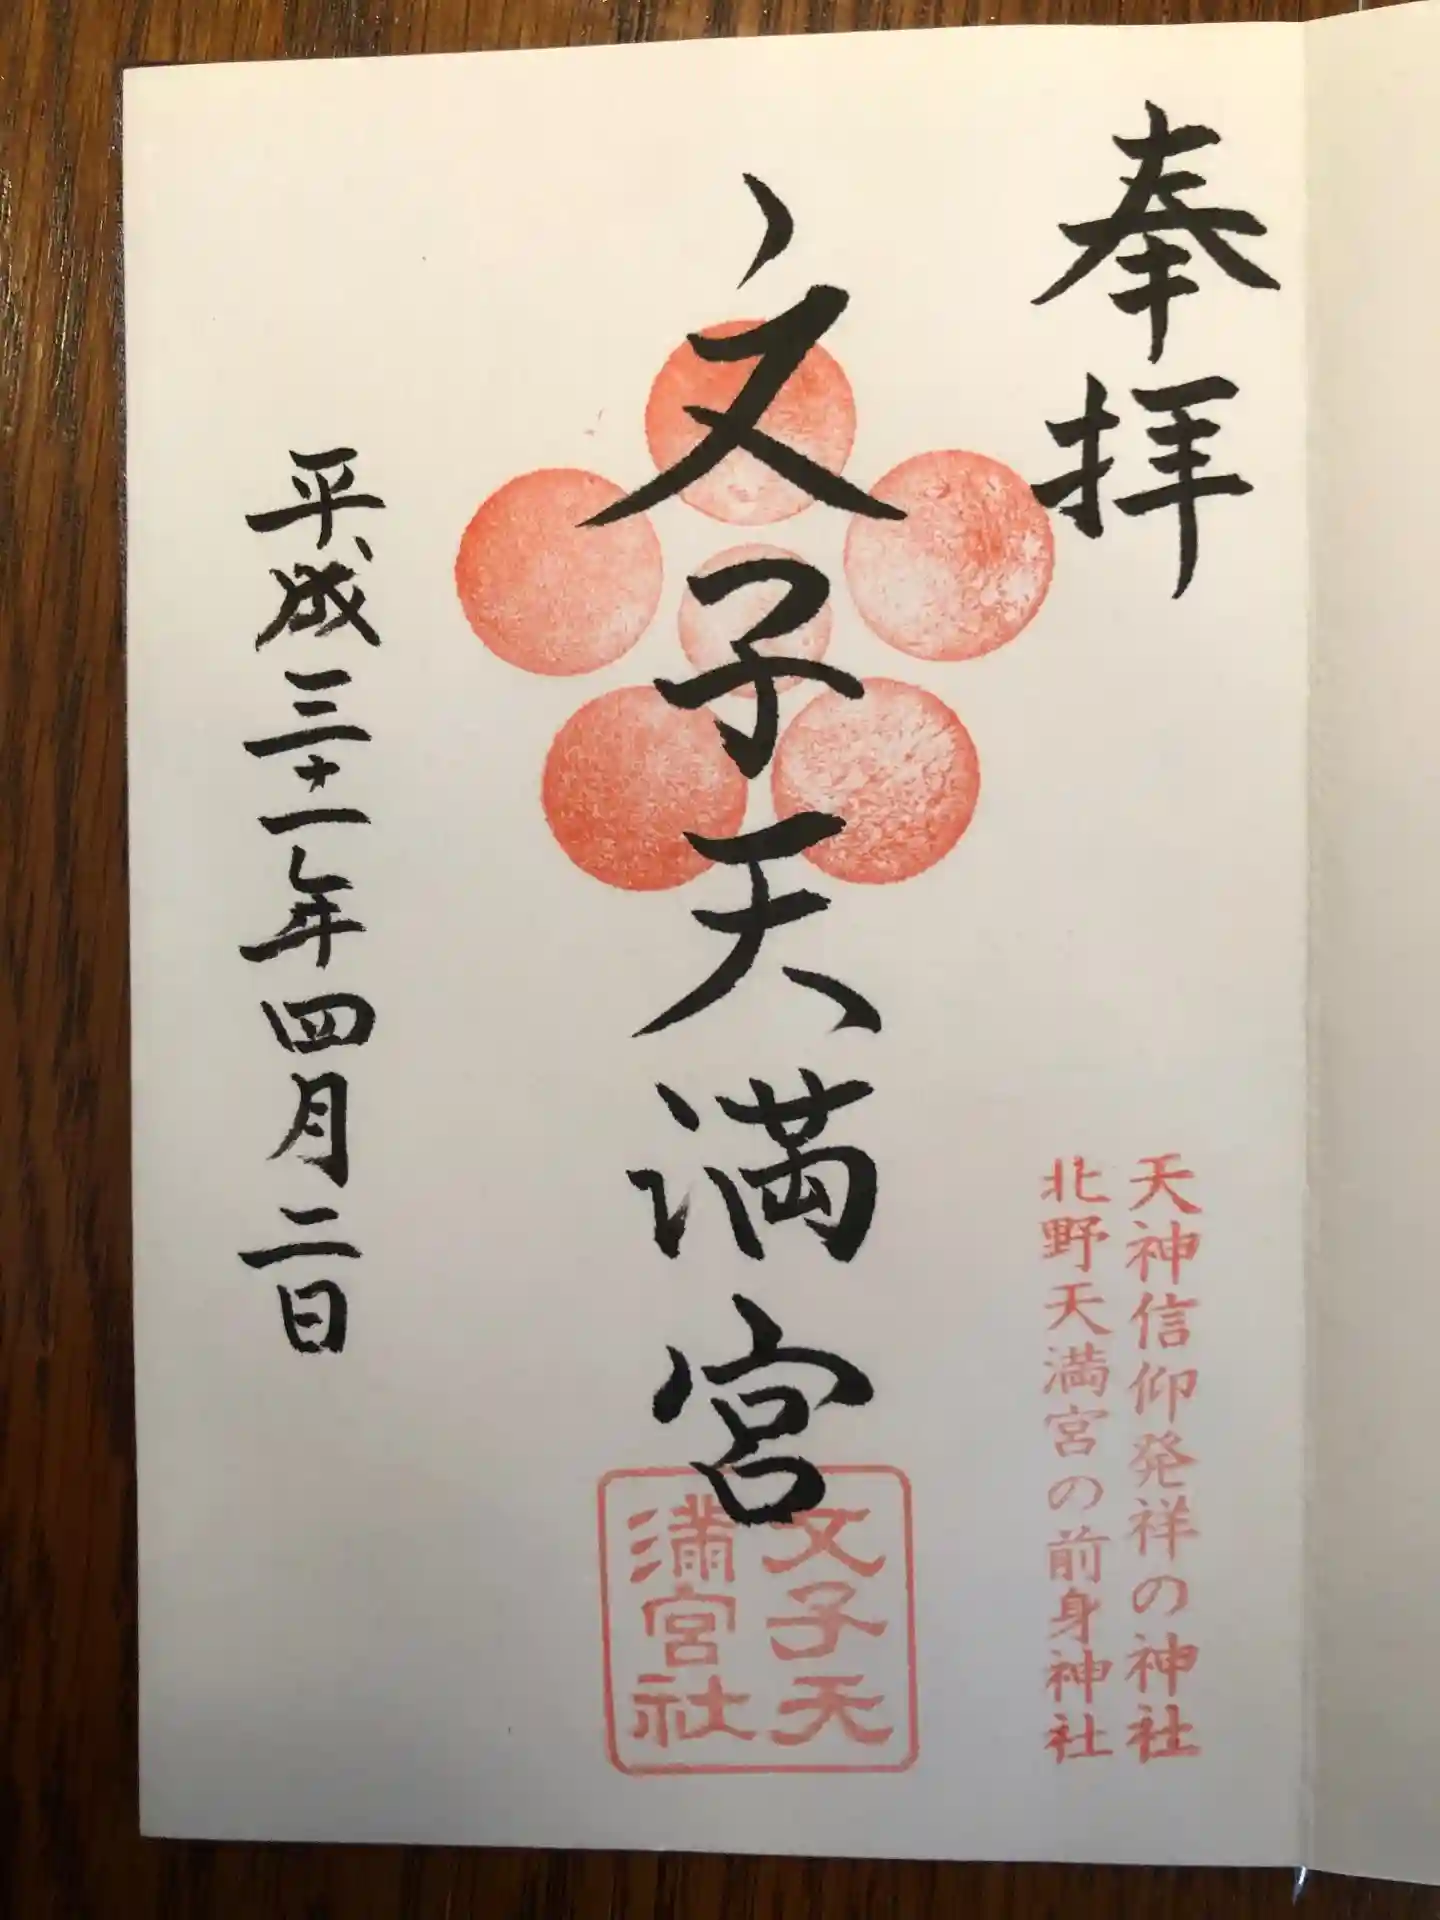 奉拝
天神信仰発祥の神社
北野天満宮の前身神社
文子天満宮
文子天
満宮社
平成三十一年四月二日